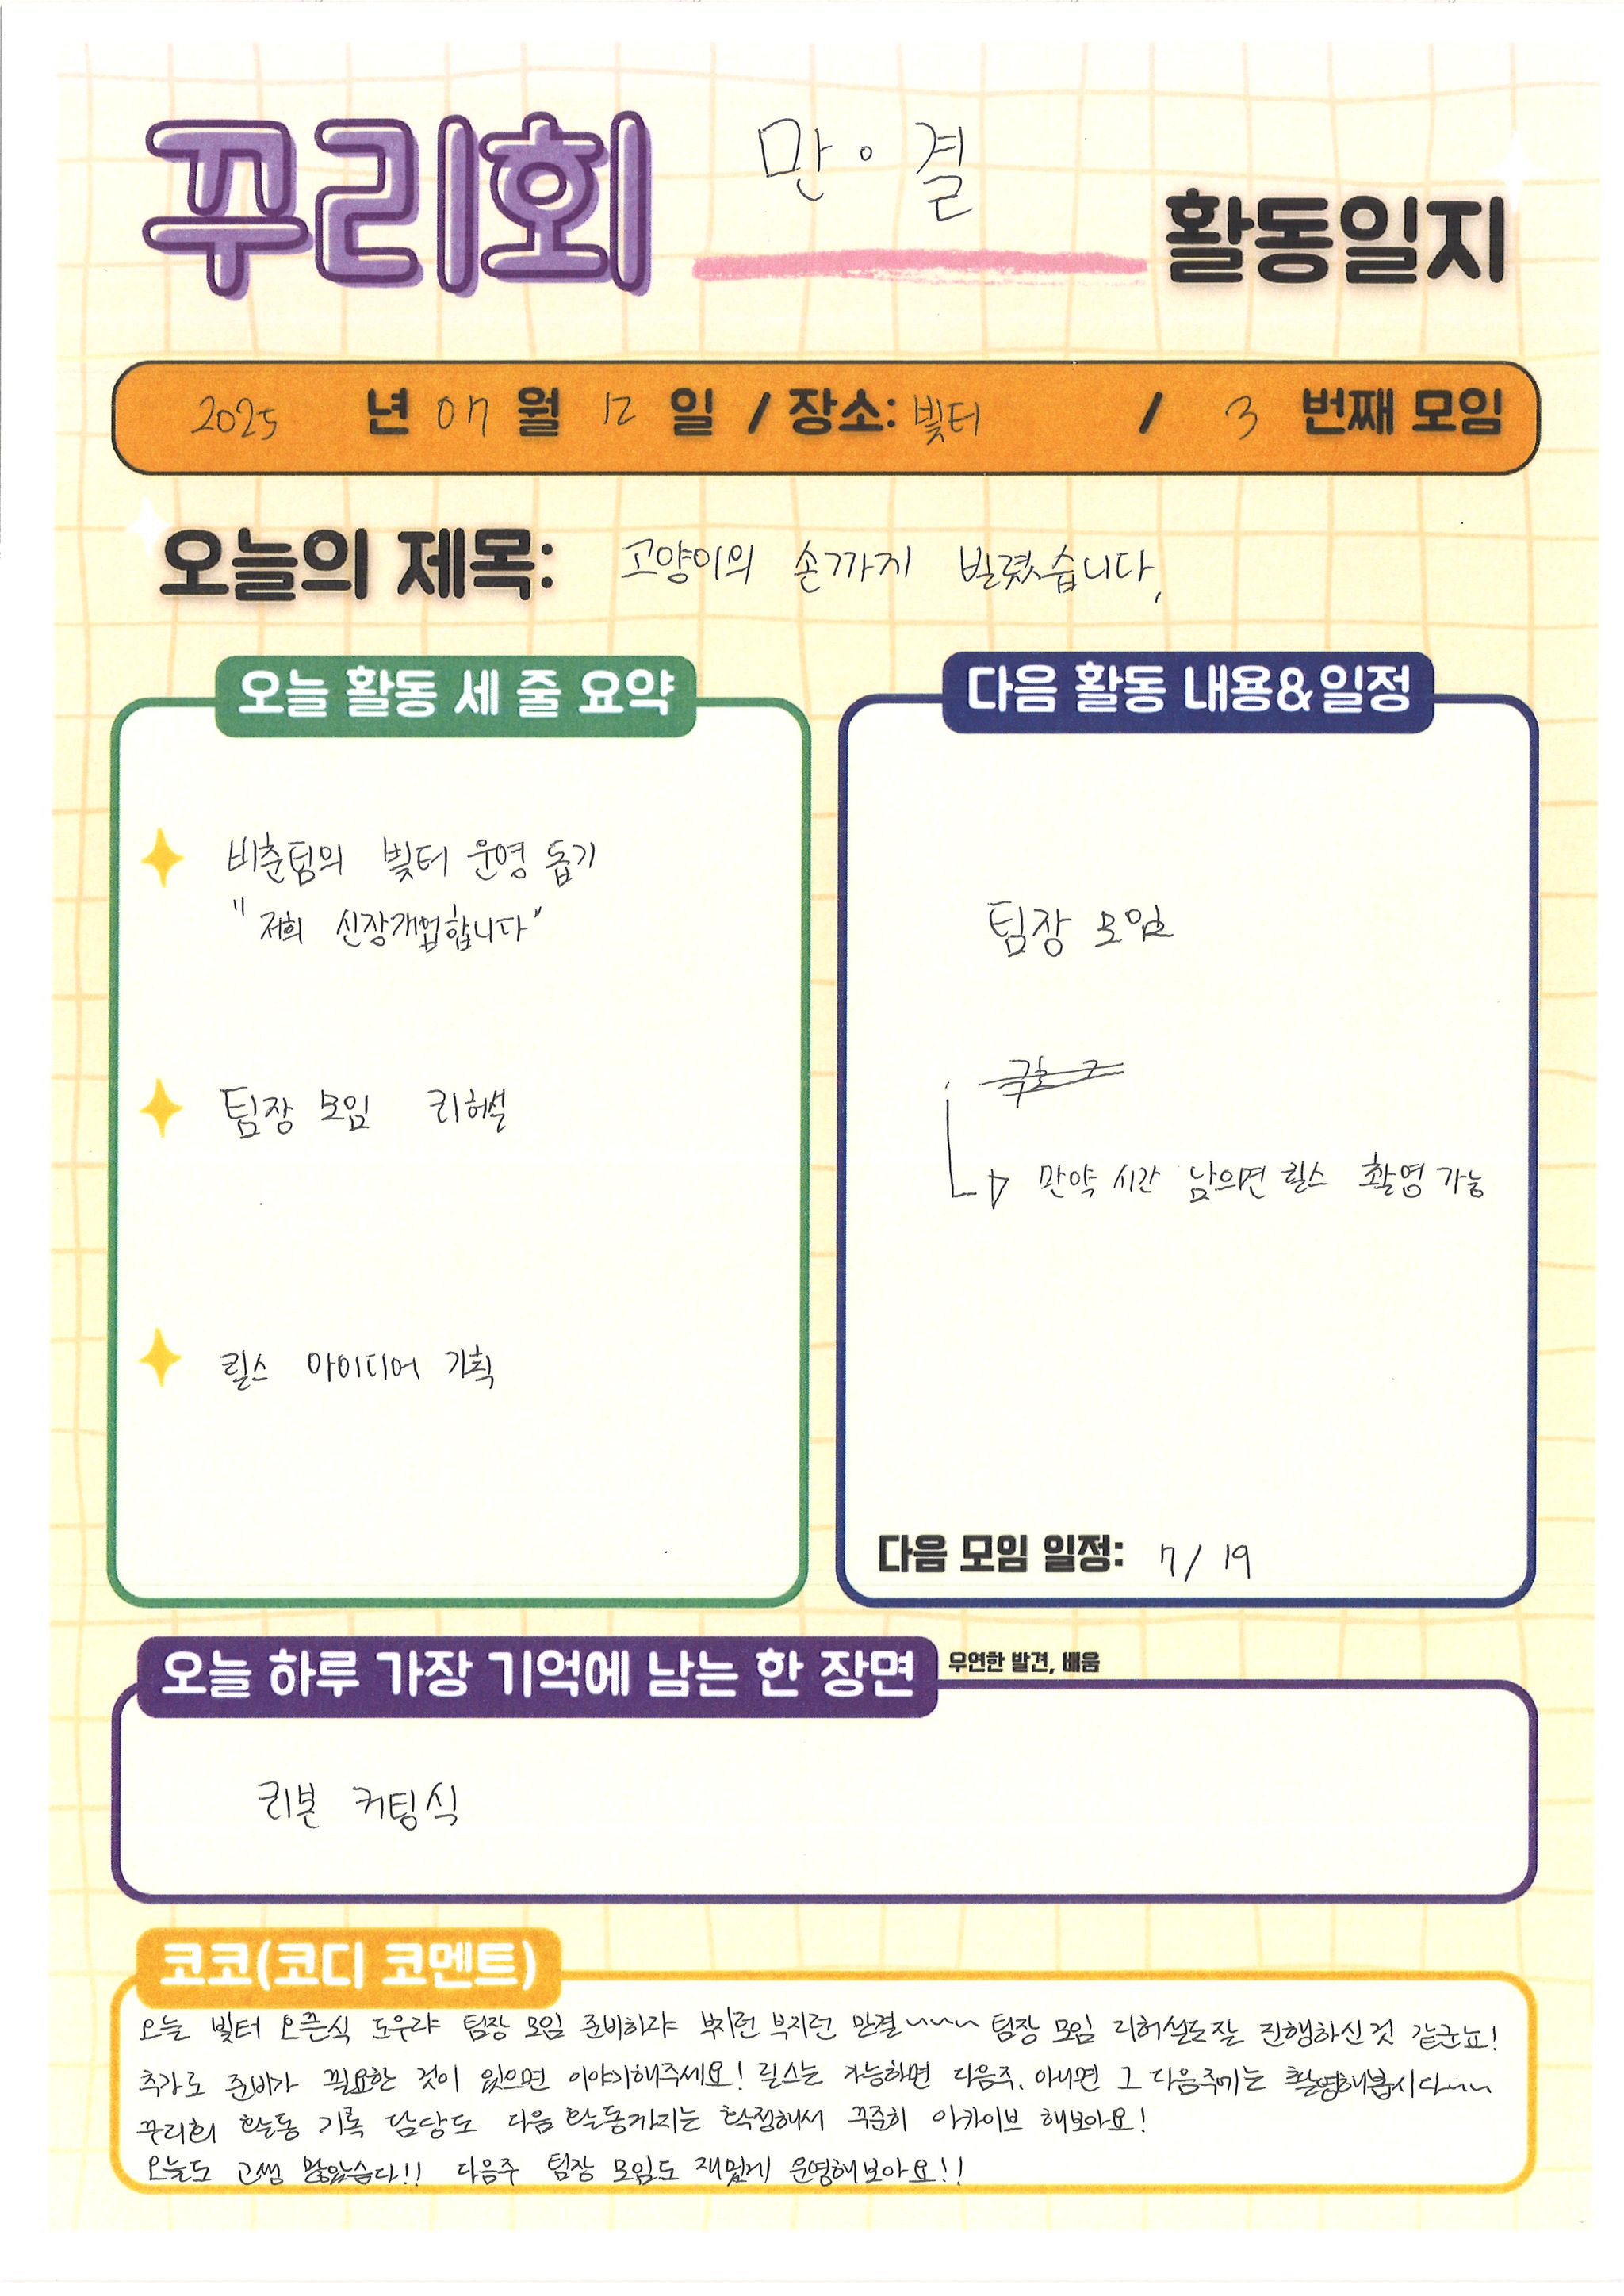 꾸리회 만·결 활동일지
2025 년 07 월 12 일 / 장소: 빛터 / 3 번째 모임
오늘의 제목: 고양이의 손까지 빌렸습니다.
오늘 활동 세 줄 요약
비춘팀의 빛터 운영 돕기
"저희 신장개업합니다"
팀장 모임 리허설
릴스 아이디어 기획
다음 활동 내용&일정
팀장 모임
만약 시간 남으면 릴스 촬영 가능
다음 모임 일정: 7/19
오늘 하루 가장 기억에 남는 한 장면 우연한 발견, 배움
리본 커팅식
코코(코디 코멘트)
오늘 빛터 오픈식 도우랴 팀장 모임 준비하랴 부지런 부지런 만결~~~ 팀장 모임 리허설도 잘 진행하신 것 같군뇨!
추가로 준비가 필요한 것이 있으면 이야기해주세요! 릴스는 가능하면 다음주, 아니면 그 다음주에는 촬영해봅시다~~
꾸리회 활동 기록 담당도 다음 활동까지는 확정해서 꾸준히 아카이브 해보아요!
오늘도 고생 많았습다!! 다음주 팀장 모임도 재밌게 운영해보아요!!